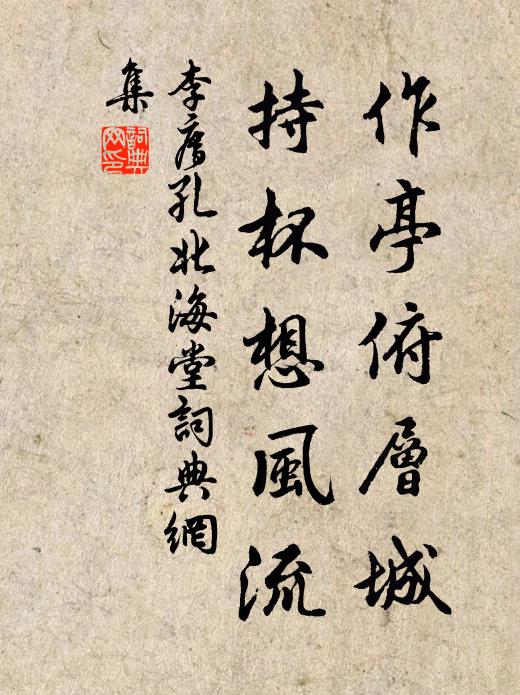 作亭俯層城
持杯想風流
李廌孔北海堂詞典網
集
詞典網印